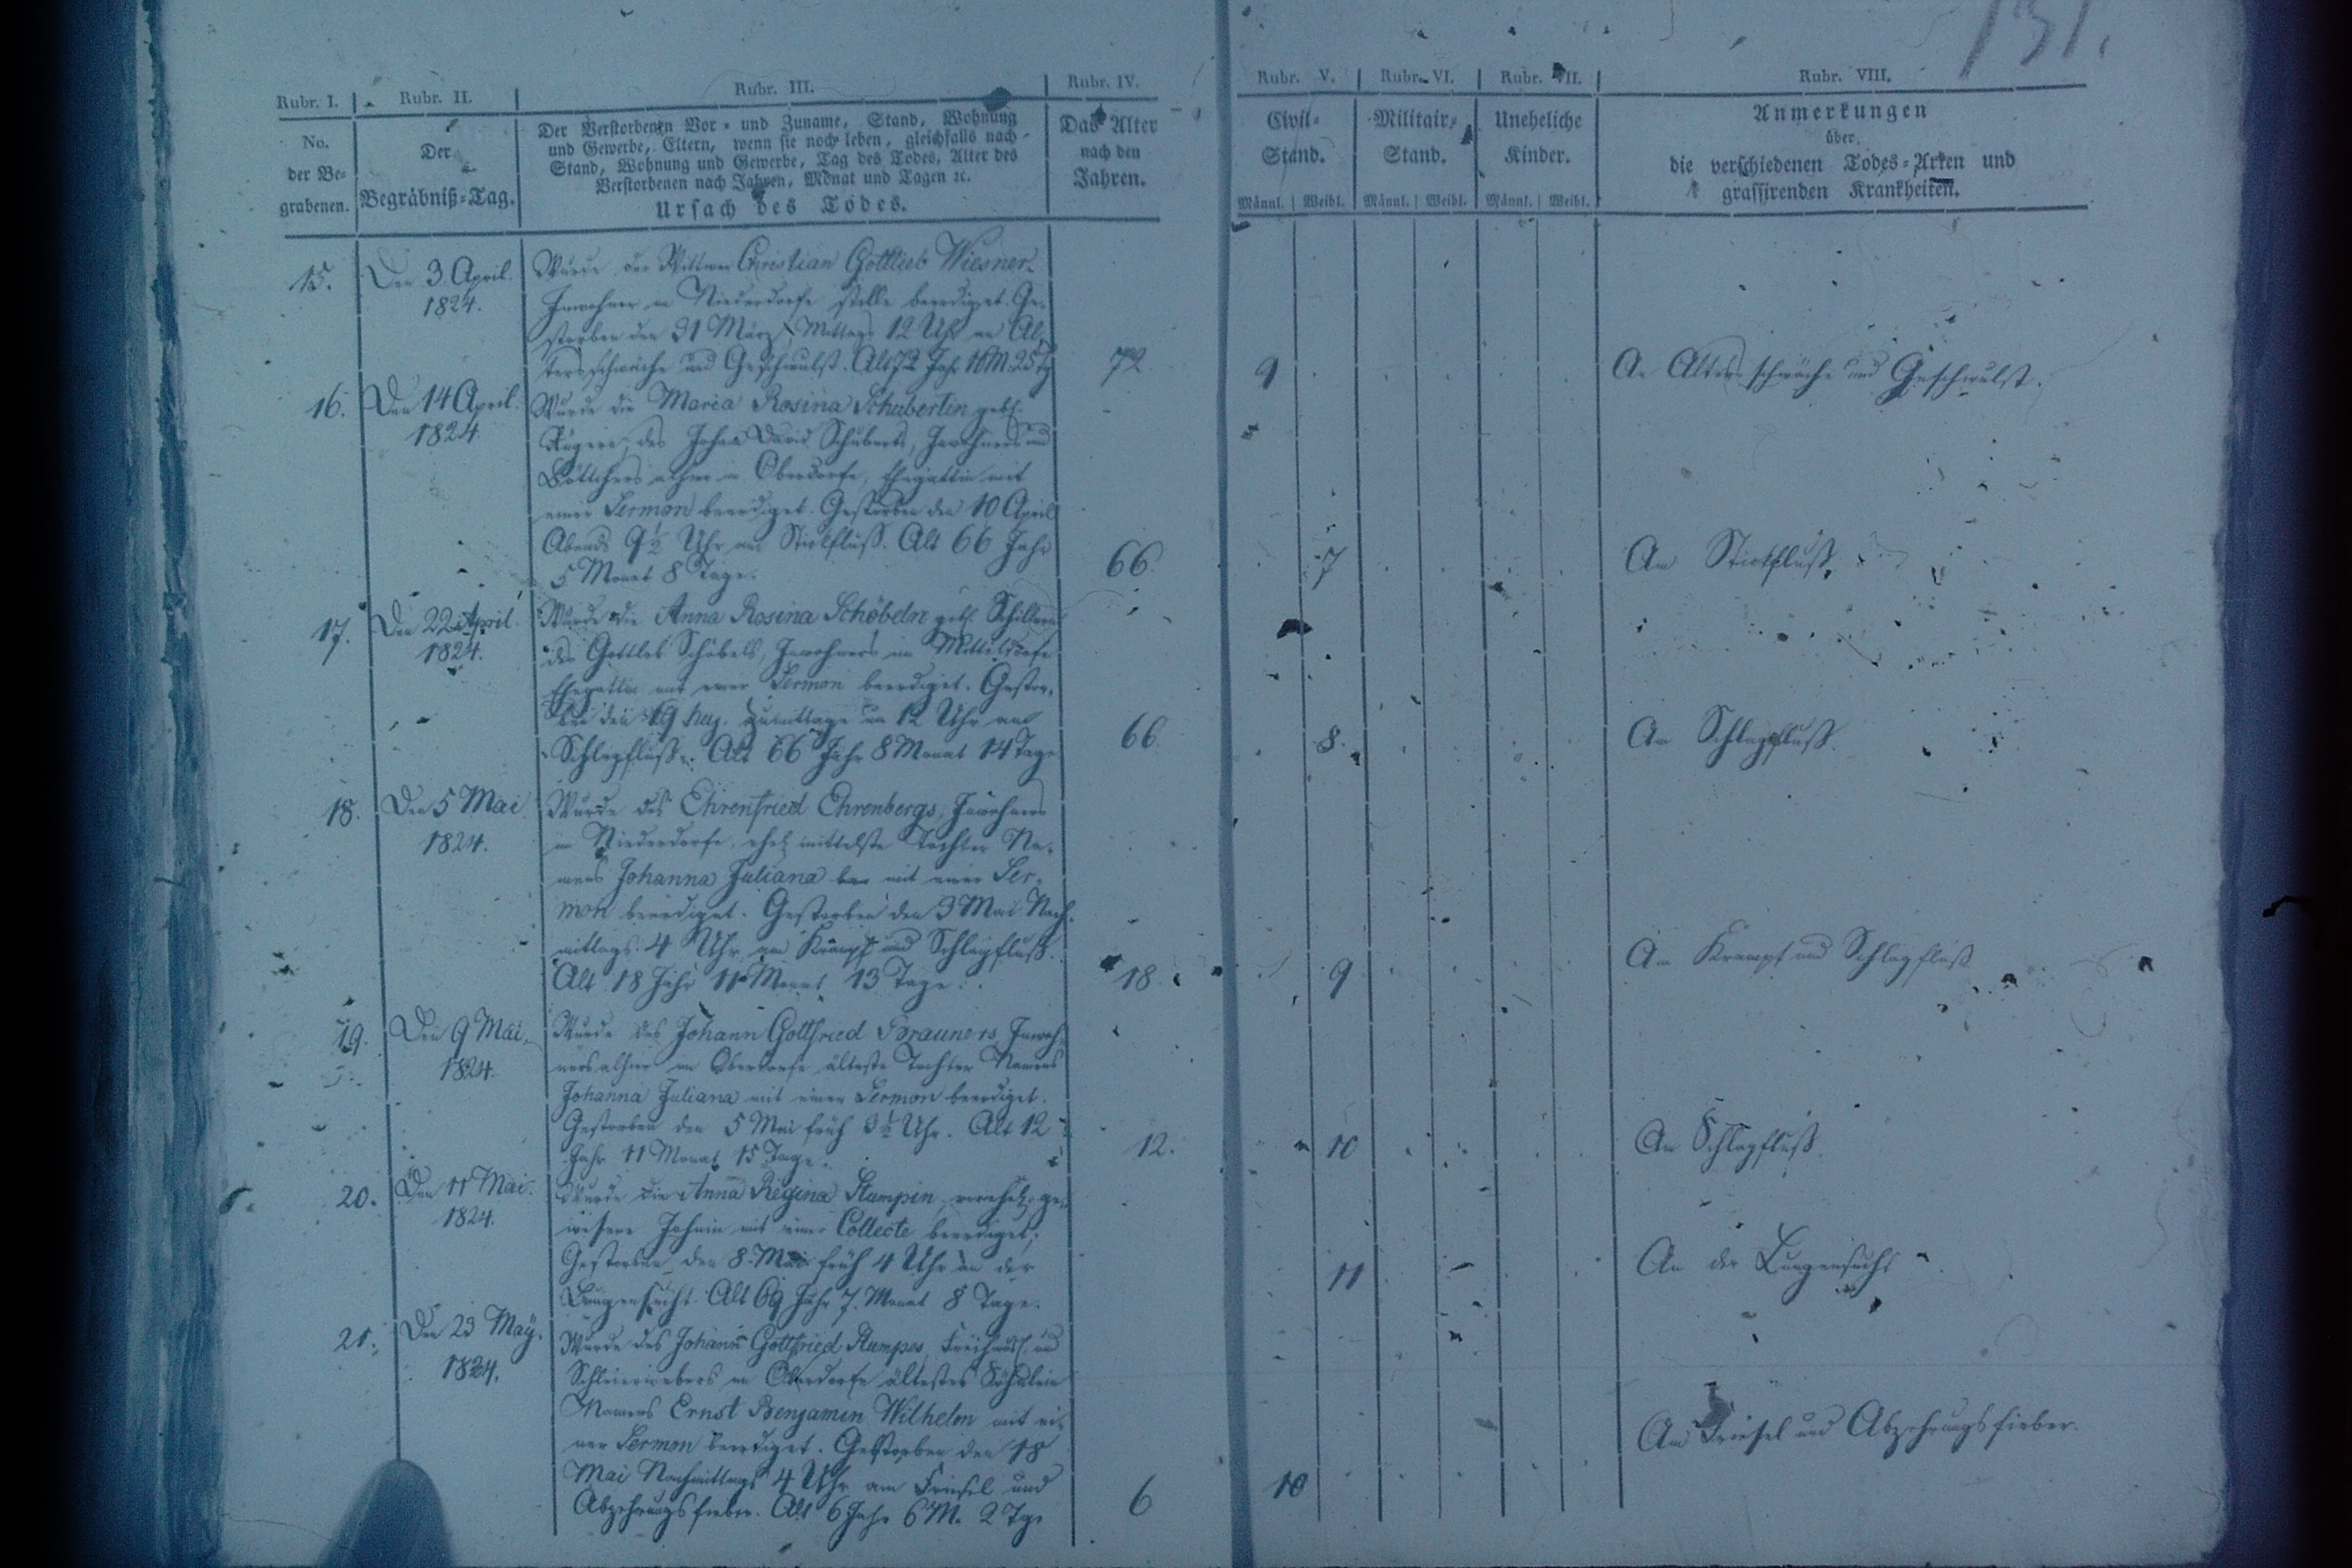 131.
Rubr. I. Rubr. II. Rubr. III. Rubr. IV. Rubr. V. Rubr. VI. Rubr. VII. Rubr. VIII.
No.
der Be-
grabenen.
Der
Begräbniß-Tag.
Der Verstorbenen Vor- und Zuname, Stand, Wohnung
und Gewerbe, Eltern, wenn sie noch leben, gleichfalls nach
Stand, Wohnung und Gewerbe, Tag des Todes, Alter des
Verstorbenen nach Jahren, Monat und Tagen ꝛc.
Ursach des Todes.
Das Alter
nach den
Jahren.
Civil-
Stand.
Männl. Weibl.
Militair-
Stand.
Männl. Weibl.
Uneheliche
Kinder.
Männl. Weibl.
Anmerkungen
über
die verschiedenen Todes-Arten und
grassirenden Krankheiten.
15. Den 3 April. Wurde der Wittwer Christian Gottlieb Wiesner
1824. Inwohner in Niederdorfe stille beerdiget. Ge-
storben den 31 März Mittags 12 Uhr an Al-
tersschwäche und Geschwulst. Alt 72 Jahr 10 M. 25 Tg 72 9 An Altersschwäche und Geschwulst.
16. Den 14 April. Wurde die Maria Rosina Schubertin gebh.
1824 des Johan David Schuberts, Inwohners und
Böttchers alhier in Oberdorfe, Ehegattin mit
einer Sermon beerdiget. Gestorben den 10 April
Abends 9½ Uhr am Stickfluß. Alt 66 Jahr
5 Monat 8 Tage. 66. 7 Am Stickfluß.
17. Den 22 April. Wurde die Anna Rosina Schöbeln gebh. Schillern
1824. des Gottlob Schöbels, Inwohners im Mitteldorfe
Ehegattin mit einer Sermon beerdiget. Gestor-
ben den 19 huj. zumittage um 12 Uhr am
Schlagfluß. Alt 66 Jahr 8 Monat 14 Tage 66 8. Am Schlagfluß.
18. Den 5 Mai Wurde des Ehrenfried Ehrenbergs, Inwohners
1824. in Niederdorfe, ehel. mittelste Tochter Na-
mens Johanna Juliana mit einer Ser-
mon beerdiget. Gestorben den 3 Mai Nach-
mittags 4 Uhr am Krampf und Schlagfluß.
Alt 18 Jahr 11 Monat 13 Tage. 18. 9 Am Krampf und Schlagfluß
19. Den 9 Mai. Wurde des Johann Gottfried Brauners, Inwoh-
1824. ners alhier im Oberdorfe älteste Tochter Namens
Johanna Juliana mit einer Sermon beerdiget.
Gestorben den 5 Mai früh 3½ Uhr. Alt 12
Jahr 11 Monat 15 Tage. 12. 10 Am Schlagfluß
20. Den 11 Mai. Wurde die Anna Regina Stumpin, verehel. ge-
1824. wesene Jahnin mit einer Collecte beerdiget;
Gestorben den 8. Mai früh 4 Uhr an der
Lungensucht. Alt 69 Jahr 7. Monat 8 Tage. 11 An der Lungensucht
21. Den 23 Maÿ. Wurde des Johann Gottfried Stumpes, und
1824. Schleierwebers im Oberdorfe ältestes Söhnlein
Namens Ernst Benjamin Wilhelm mit ei-
ner Sermon beerdiget. Gestorben den 18
Mai Nachmittags 4 Uhr am Friesel und
Abzehrungsfieber. Alt 6 Jahr 6 M. 2 Tge 6 10 Am Friesel und Abzehrungsfieber.